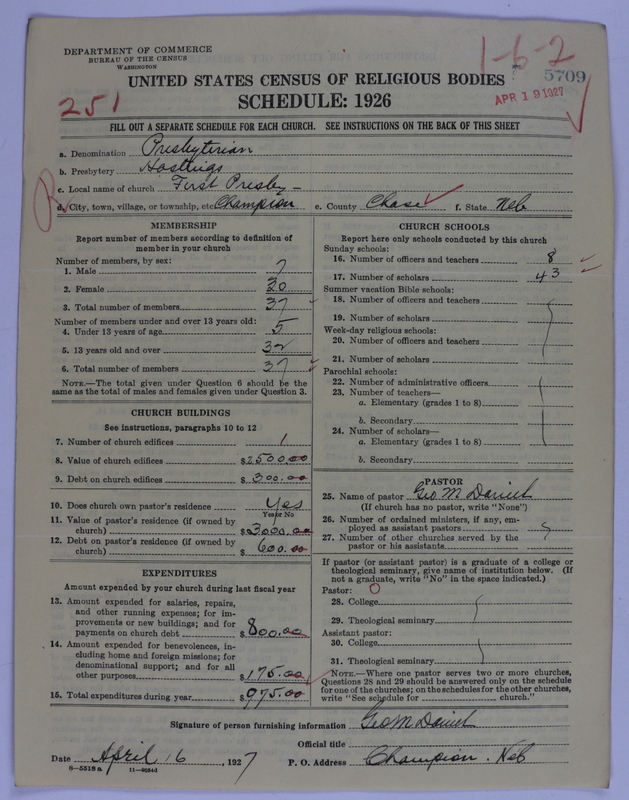 DEPARTMENT OF COMMERCE
BUREAU OF THE CENSUS
WASHINGTON
1-6-2
5709
UNITED STATES CENSUS OF RELIGIOUS BODIES
APR 19 1927
251
SCHEDULE: 1926
FILL OUT A SEPARATE SCHEDULE FOR EACH CHURCH. SEE INSTRUCTIONS ON THE BACK OF THIS SHEET
a. Denomination Presbyterian
b. Presbytery Hastings
c. Local name of church First Presby-
d. City, town, village, or township, etc. Champion e. County Chase f. State Neb
MEMBERSHIP
Report number of members according to definition of
member in your church
Number of members, by sex:
1. Male 7
2. Female 30
3. Total number of members 37
Number of members under and over 13 years old:
4. Under 13 years of age 5
5. 13 years old and over 32
6. Total number of members 37
NOTE.—The total given under Question 6 should be the
same as the total of males and females given under Question 3.
CHURCH BUILDINGS
See instructions, paragraphs 10 to 12
7. Number of church edifices 1
8. Value of church edifices $2500.00
9. Debt on church edifices $300.00
10. Does church own pastor's residence Yes
Yes or No
11. Value of pastor's residence (if owned by
church) $3000.00
12. Debt on pastor's residence (if owned by
church) $600.00
EXPENDITURES
Amount expended by your church during last fiscal year
13. Amount expended for salaries, repairs,
and other running expenses; for im-
provements or new buildings; and for
payments on church debt $800.00
14. Amount expended for benevolences, in-
cluding home and foreign missions; for
denominational support; and for all
other purposes $175.00
15. Total expenditures during year $975.00
CHURCH SCHOOLS
Report here only schools conducted by this church
Sunday schools:
16. Number of officers and teachers 8
17. Number of scholars 43
Summer vacation Bible schools:
18. Number of officers and teachers
19. Number of scholars
Week-day religious schools:
20. Number of officers and teachers
21. Number of scholars
Parochial schools:
22. Number of administrative officers
23. Number of teachers—
a. Elementary (grades 1 to 8)
b. Secondary
24. Number of scholars—
a. Elementary (grades 1 to 8)
b. Secondary
PASTOR
25. Name of pastor Geo. M Daniel
(If church has no pastor, write "None")
26. Number of ordained ministers, if any, em-
ployed as assistant pastors
27. Number of other churches served by the
pastor or his assistants
If pastor (or assistant pastor) is a graduate of a college or
theological seminary, give name of institution below. (If
not a graduate, write "No" in the space indicated.)
Pastor: O
28. College
29. Theological seminary
Assistant pastor:
30. College
31. Theological seminary
NOTE.—Where one pastor serves two or more churches,
Questions 28 and 29 should be answered only on the schedule
for one of the churches; on the schedules for the other churches,
write "See schedule for church."
Signature of person furnishing information Geo M Daniel
Official title
Date April 16, 1927 P. O. Address Champion. Neb
8—5518 a 11—9284d